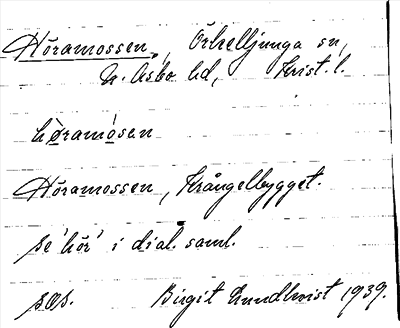 Höramossen, Örkelljunga sn,
N. Åsbo hd, Krist. l.
høramósen
Höramossen, Krångelbygget.
se 'hör' i dial. saml.
sæs. Birgit Lundkvist 1939.